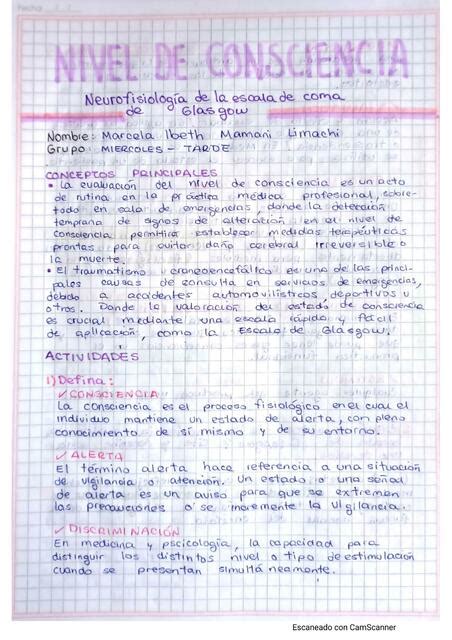 Fecha
NIVEL DE CONSCIENCIA
Neurofisiología de la escala de coma
de Glasgow
Nombre: Marcela Ibeth Mamani Limachi
Grupo: MIERCOLES - TARDE
CONCEPTOS PRINCIPALES
• La evaluación del nivel de consciencia es un acto
de rutina en la práctica médica profesional, sobre-
todo en sala de emergencias, donde la detección
temprana de signos de alteración en el nivel de
consciencia permitirá establecer medidas terapéuticas
prontas para evitar daño cerebral irreversible o
la muerte.
• El traumatismo craneoencefálico es una de las princi-
pales causas de consulta en servicios de emergencias,
debido a accidentes automovilísticos, deportivos u
otros. Donde la valoración del estado de consciencia
es crucial mediante una escala rápida y fácil
de aplicación, como la Escala de Glasgow.
ACTIVIDADES
1) Defina:
✓ CONSCIENCIA
La consciencia es el proceso fisiológico en el cual el
individuo mantiene un estado de alerta, con pleno
conocimiento de sí mismo y de su entorno.
✓ ALERTA
El término alerta hace referencia a una situación
de vigilancia o atención. Un estado o una señal
de alerta es un aviso para que se extremen
las precauciones o se incremente la vigilancia.
✓ DISCRIMINACIÓN
En medicina y pscicología, la capacidad para
distinguir los distintos nivel o tipo de estimulación
cuando se presentan simultáneamente.
Escaneado con CamScanner